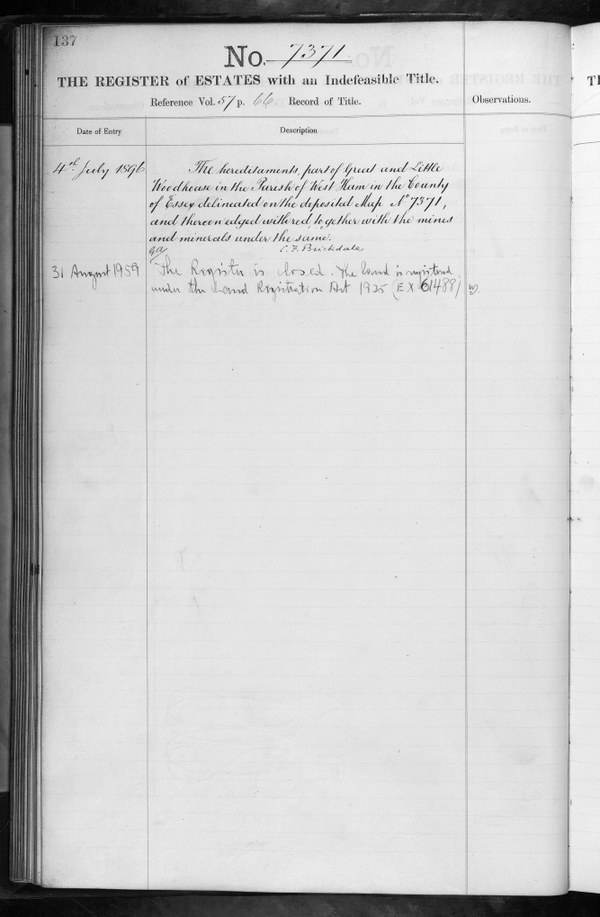 137
No. 7371
THE REGISTER of ESTATES with an Indefeasible Title.
Reference Vol. 57 p. 66 Record of Title.
Observations.
Date of Entry
Description
4th July 1896
The hereditaments, part of Great and Little
Woodhouse in the Parish of West Ham in the County
of Essex delineated on the deposited Map No 7371,
and thereon edged with red, together with the mines
and minerals under the same.
C. F. Brickdale
31 August 1959
The Register is closed. The land is registered
under the Land Registration Act 1925 (EX 61488)